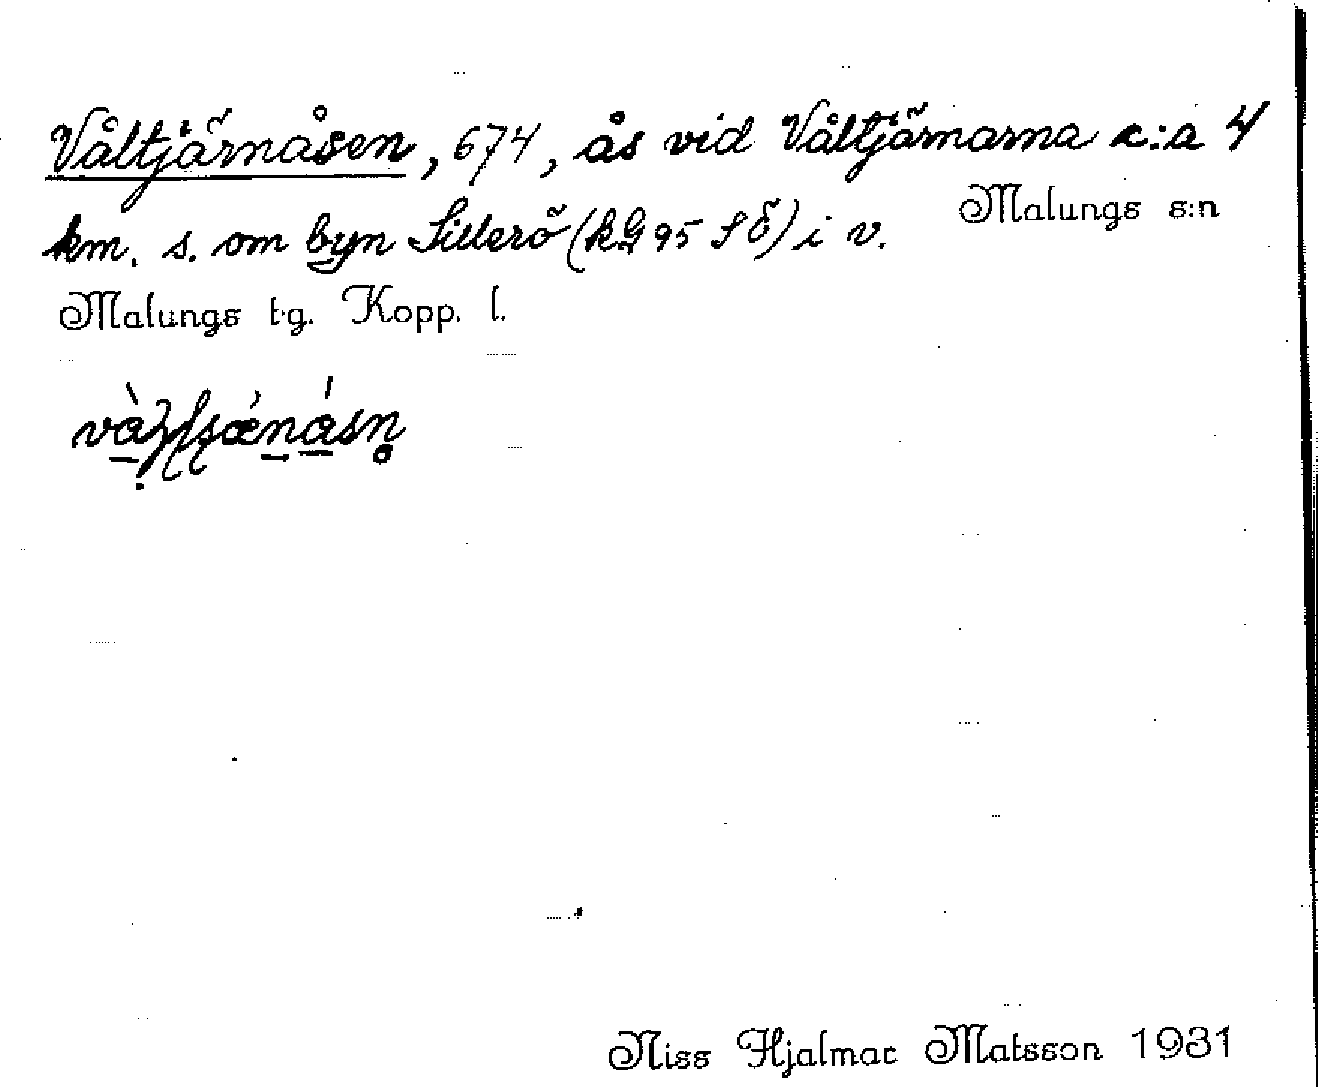 Våltjärnåsen, 674, ås vid Våltjärnarna c:a 4
Malungs s:n
km. s. om byn Sillerö (kG 95 SÖ) i v.
Malungs tg. Kopp. l.
Niss Hjalmar Matsson 1931